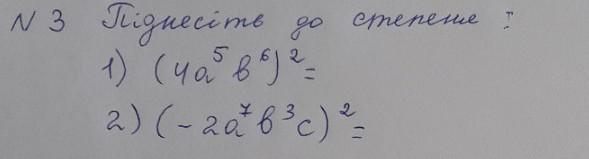 N 3 Піднесіть до степеня :
1) (4a⁵b⁶)²=
2) (-2a⁷b³c)²=